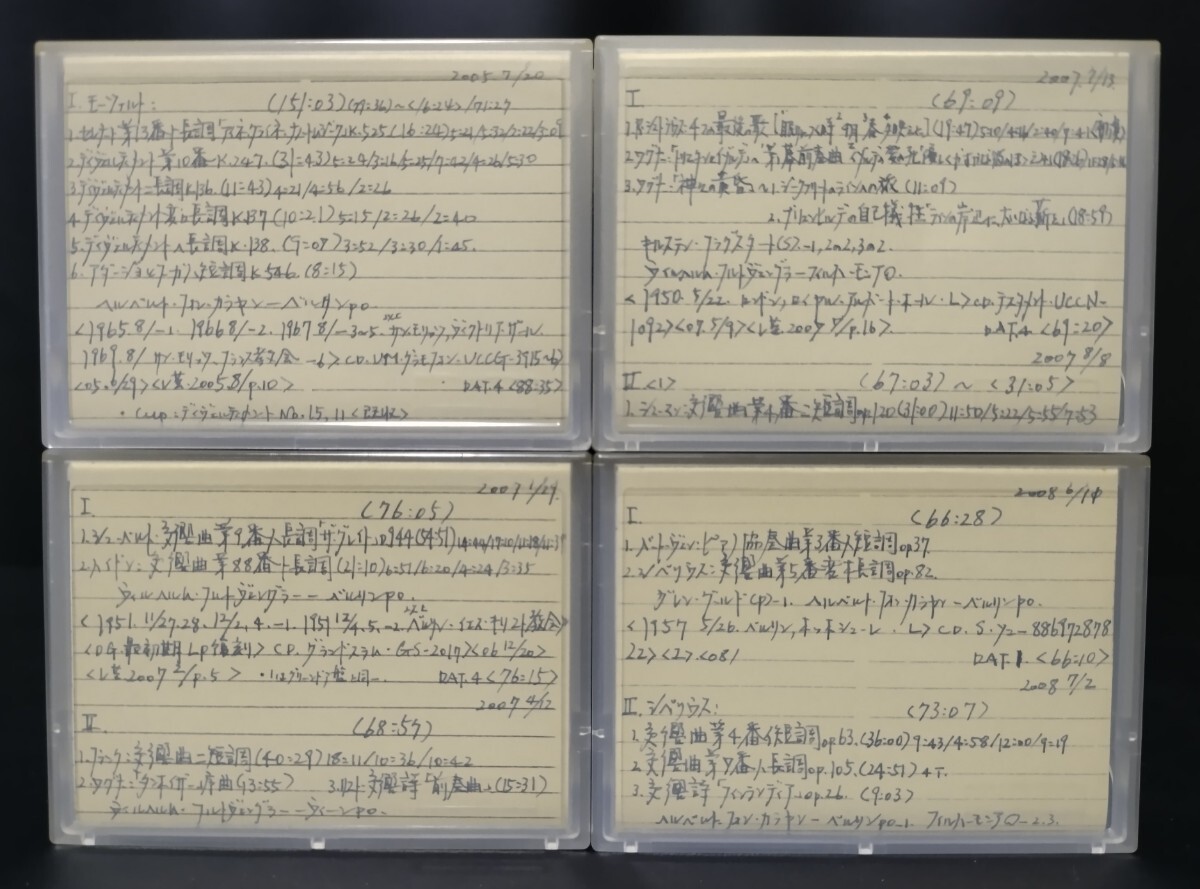 2005.7/20
I. モーツァルト: (151:03) (79:36)~(16:24)/71:27
1. セレナード第13番ト長調「アイネ・クライネ・ナハトムジーク」K.525 (16:24)
2. ディヴェルティメント第10番 K.247. (31:43) 5:24/3:16/5:25/7:42/4:26/5:30
3. ディヴェルティメントニ長調K.136. (11:43) 4:21/4:56/2:26
4. ディヴェルティメント変ロ長調K.137 (10:21) 5:15/2:26/2:40
5. ディヴェルティメントヘ長調K.138. (9:07) 3:52/3:30/1:45.
6. アダージョとフーガハ短調K.546. (8:15)
ヘルベルト・フォン・カラヤン ー ベルリンpo.
<1965.8/-1. 1966 8/-2. 1967.8/-3~5. サン・モリッツ,
1969.8/ サン・モリッツ、フランス教会 -6> CD. UCCG-3915~6>
2005.8/p.10> DAT.4 <88:35>
・cup: ディヴェルティメント No.15, 11 <既収>
2007.
I (69:09)
1. R.シュトラウス: 4つの最後の歌 (19:47)
2. ワグナー:「トリスタンとイゾルデ」~第1幕前奏曲
3. ワグナー:「神々の黄昏」~1. ジークフリートのラインへの旅 (11:09)
2. ブリュンヒルデの自己犠牲 (18:59)
キルステン・フラグスタート(S)-1, 2の2, 3の2.
ウィルヘルム・フルトヴェングラー ー フィルハーモニアO.
<1950. 5/22. ロンドン, ロイヤル・アルバート・ホール・L> CD. テスタメント・UCCN-
1092> <07. 5/9> 2007 7/p.16> DAT.4 <69:20>
2007 8/8
II <1> (67:03) ~ <31:05>
1. シューマン: 交響曲第4番ニ短調op.120 (31:00) 11:50/5:22/5:55/7:53
2007 1/29.
I. (76:05)
1. シューベルト: 交響曲第9番ハ長調「ザ・グレイト」D.944 (54:51)
2. ハイドン: 交響曲第88番ト長調 (21:10) 6:51/6:20/4:24/3:35
ウィルヘルム・フルトヴェングラー ー ベルリンpo.
<1951. 11/27.28. 12/2, 4. -1. 1951 12/4.5. -2. ベルリン・イエス・キリスト教会>
<DG最初期LP復刻> CD. グランドスラム・GS-2017> <06 12/20>
2007 2/p.5> DAT.4 <76:15>
2007 4/12
II. (68:57)
1. フランク: 交響曲ニ短調 (40:29) 18:11/10:36/10:42
2. ワグナー:「タンホイザー」序曲 (13:55) 3. リスト: 交響詩「前奏曲」. (15:31)
ウィルヘルム・フルトヴェングラー ー ウィーンpo.
2008 6/14
I. (66:28)
1. ベートーヴェン: ピアノ協奏曲第3番ハ短調op.37.
2. シベリウス: 交響曲第5番変ホ長調op.82.
グレン・グールド(P)-1. ヘルベルト・フォン・カラヤン ー ベルリンpo.
<1957 5/26. ベルリン, ホッホシューレ・L> CD. ソニー 886972878
22> <2> <08/ DAT.1. <66:10>
2008 7/2
II. シベリウス: (73:07)
1. 交響曲第4番イ短調op.63. (36:00) 9:43/4:58/12:00/9:19
2. 交響曲第7番ハ長調op.105. (24:51) 4T.
3. 交響詩「フィンランディア」op.26. (9:03)
ヘルベルト・フォン・カラヤン ー ベルリンpo-1. フィルハーモニアO-2.3.